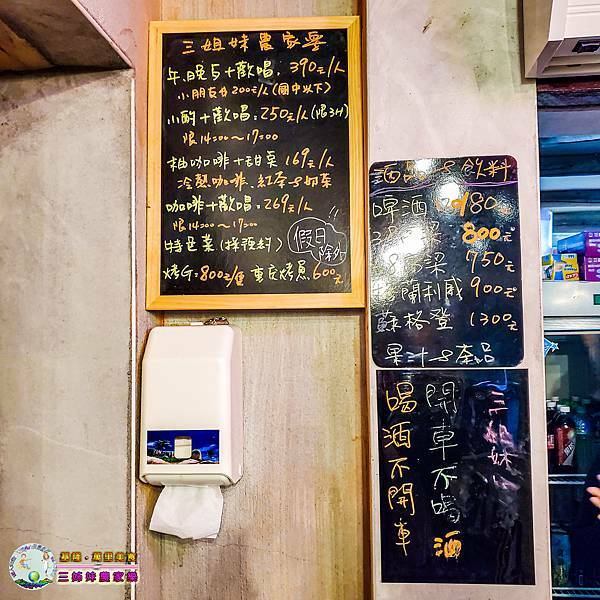 三姐妹農家樂
午、晚5+歡唱：390元/人
小朋友分200元/人(國中以下)
小酌+歡唱：250元/人(限3H)
限14:00~17:00
柚咖啡+甜菜169元/人
冷熱咖啡、紅茶、奶茶
咖啡+歡唱：269元/人
限14:00~17:00
特色菜(採預約)
假日除外
烤G：800元/隻 重慶烤魚600元
酒品&飲料
啤酒 80元
梁 800元
高梁 750元
格蘭利威 900元
蘇格登 1300元
果汁&茶品
三姐妹
開車不喝酒
喝酒不開車
基隆。萬里美宿
三姊妹農家樂